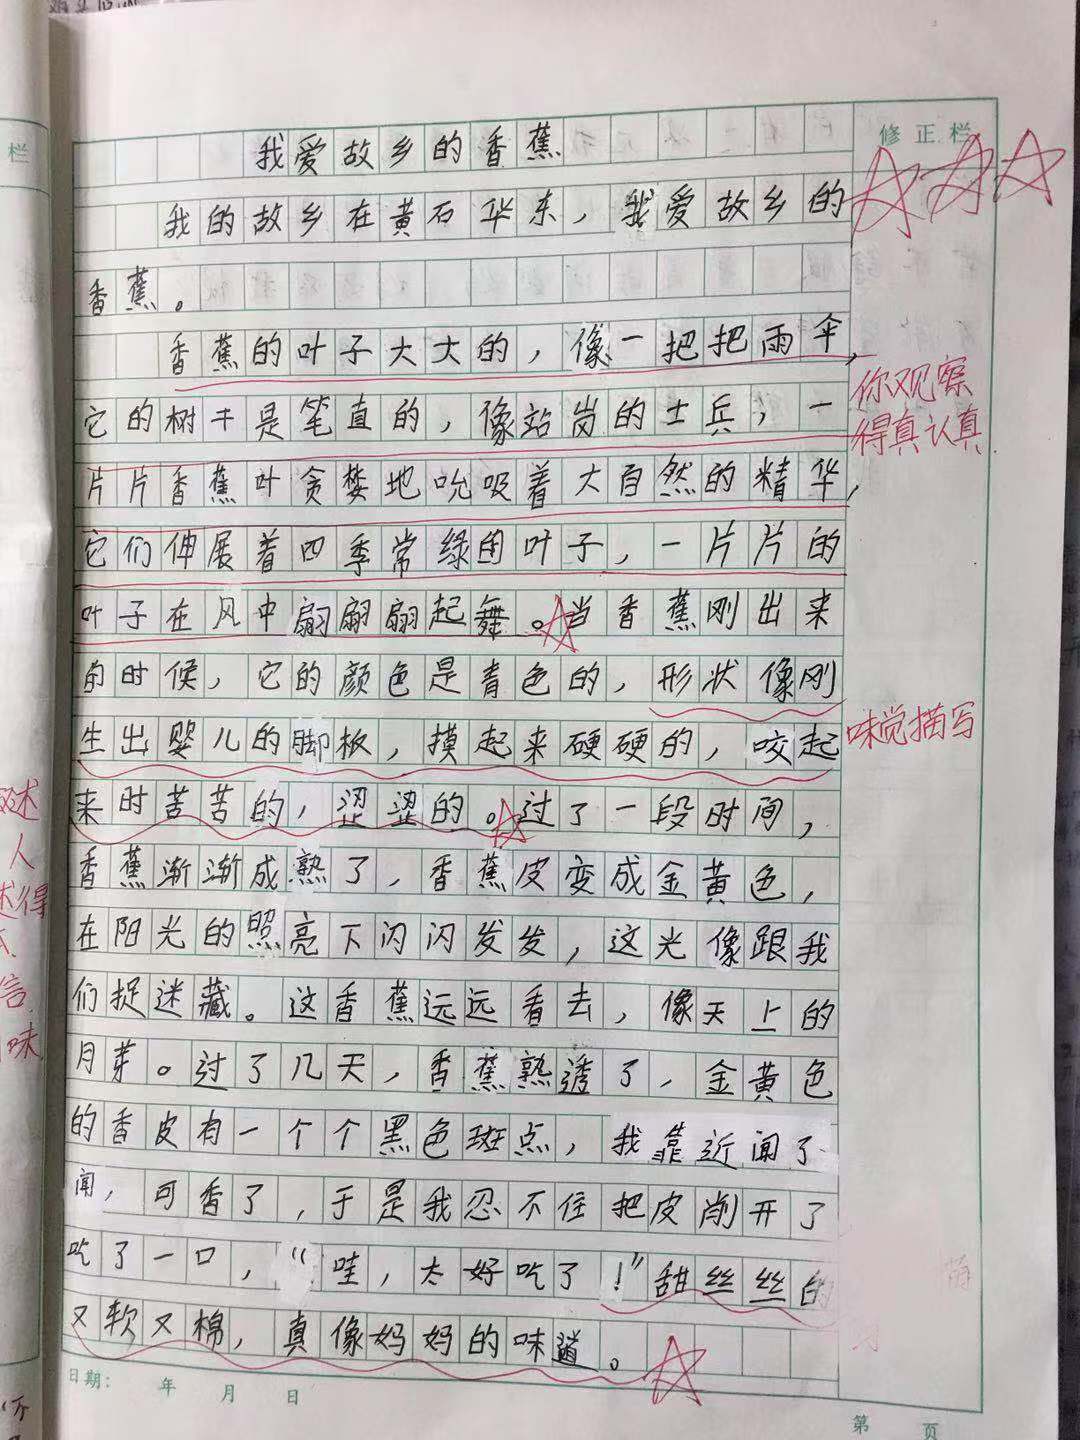 修正栏
我爱故乡的香蕉
我的故乡在黄石华东，我爱故乡的
香蕉。
香蕉的叶子大大的，像一把把雨伞，
它的树干是笔直的，像站岗的士兵，一
你观察
得真认真
片片香蕉叶贪婪地吮吸着大自然的精华，
它们伸展着四季常绿的叶子，一片片的
叶子在风中翩翩翩起舞。当香蕉刚出来
的时候，它的颜色是青色的，形状像刚
生出婴儿的脚板，摸起来硬硬的，咬起
味觉描写
来时苦苦的，涩涩的。过了一段时间，
香蕉渐渐成熟了，香蕉皮变成金黄色，
在阳光的照亮下闪闪发发，这光像跟我
们捉迷藏。这香蕉远远看去，像天上的
月芽。过了几天，香蕉熟透了，金黄色
的香皮有一个个黑色斑点，我靠近闻了
闻，可香了，于是我忍不住把皮削开了
吃了一口，“哇，太好吃了！”甜丝丝的
又软又棉，真像妈妈的味道。
日期： 年 月 日
第 页
栏
述
人
述得
信
味